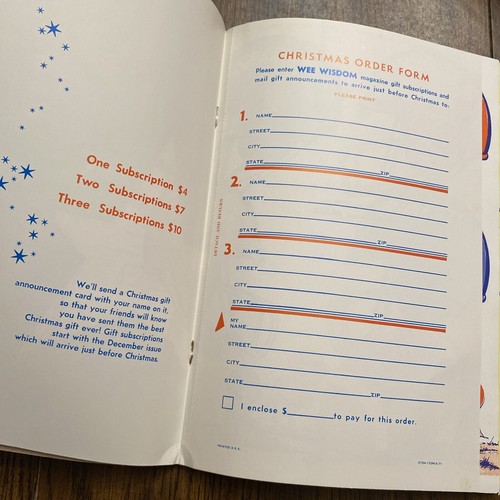 One Subscription $4
Two Subscriptions $7
Three Subscriptions $10
We'll send a Christmas gift
announcement card with your name on it,
so that your friends will know
you have sent them the best
Christmas gift ever! Gift subscriptions
start with the December issue
which will arrive just before Christmas.
CHRISTMAS ORDER FORM
Please enter WEE WISDOM magazine gift subscriptions and
mail gift announcements to arrive just before Christmas to:
PLEASE PRINT
1. NAME
STREET
CITY
STATE ZIP
2. NAME
STREET
CITY
STATE ZIP
3. NAME
STREET
CITY
STATE ZIP
DETACH AND RETURN
MY
NAME
STREET
CITY
STATE ZIP
I enclose $ to pay for this order.
PRINTED U.S.A.